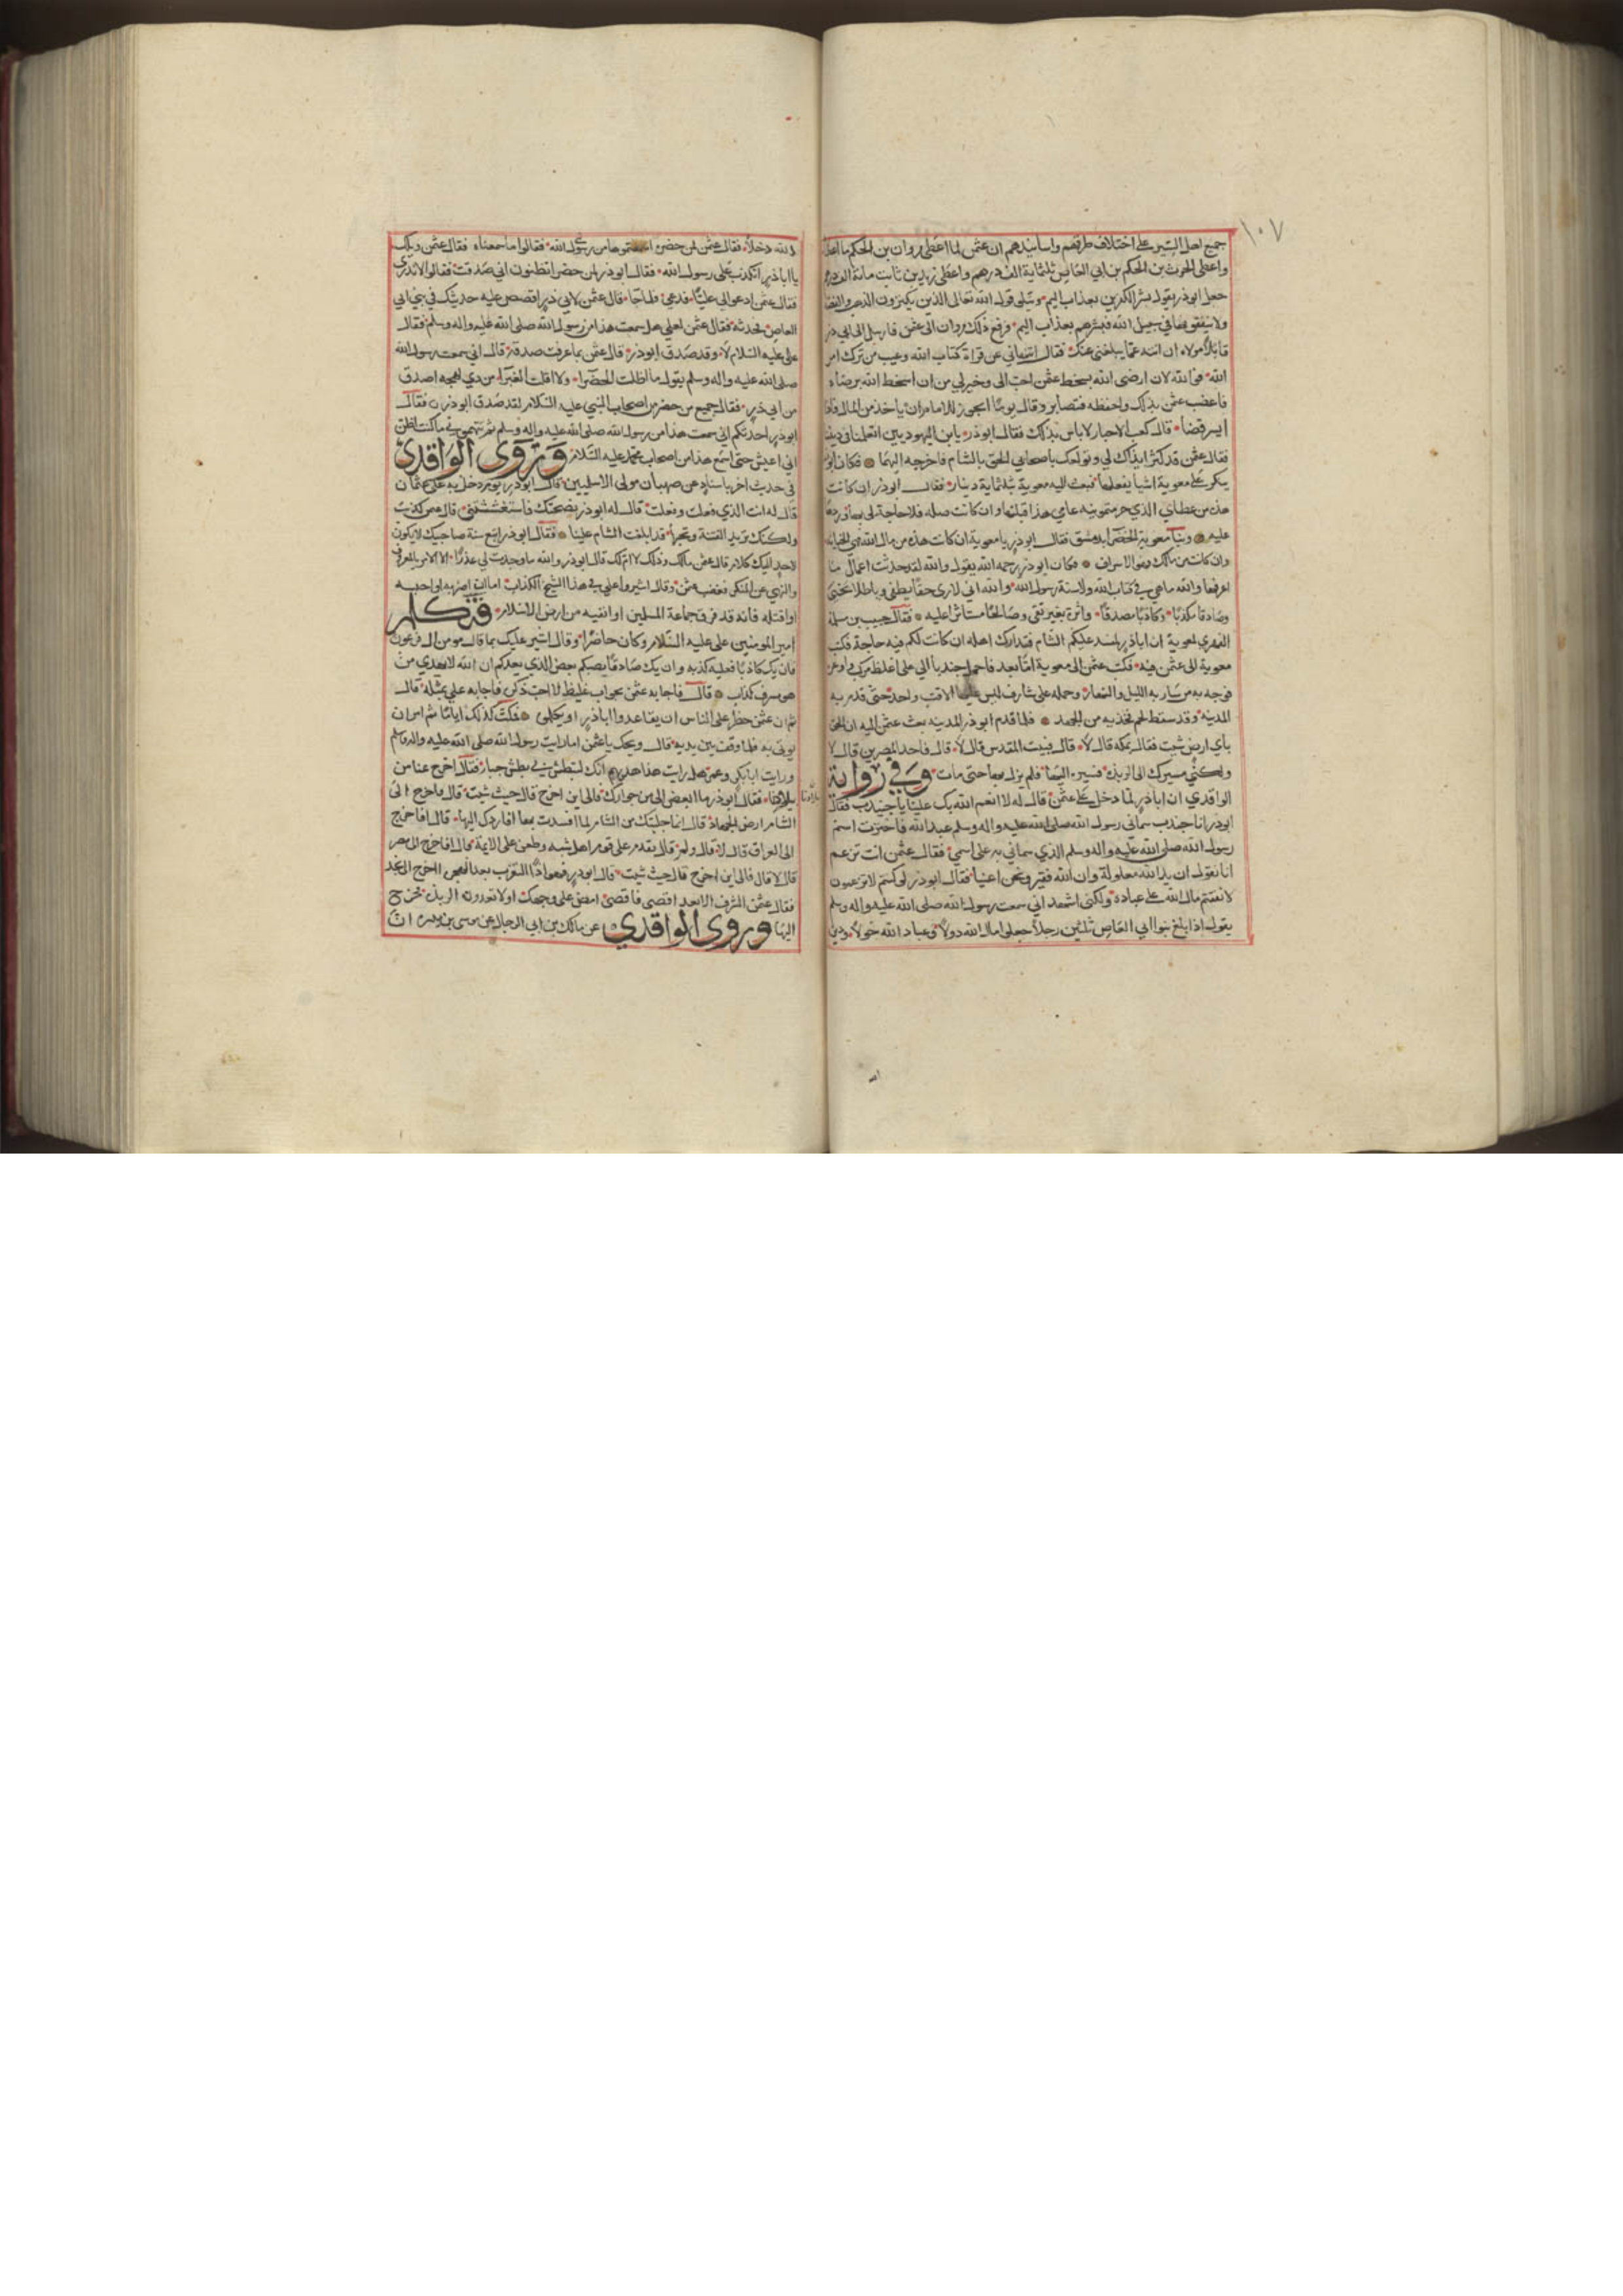 ١٠٧
جميع اهل السير على اختلاف طرقهم واسانيدهم ان عثمن لما اعطى مروان بن الحكم ما اعطا
واعطى الحرث بن الحكم بن ابي العاص ثلثماية الف درهم واعطى زيد بن ثابت ماية الف درهم
جعل ابوذر يقول بشر الكنزين بعذاب اليم ويتلى قول الله تعالى الذين يكنزون الذهب والفضة
ولا ينفقونها في سبيل الله فبشرهم بعذاب اليم فرفع ذلك مروان الى عثمن فارسل الى ابي ذر
مولاه ان انته عما يبلغني عنك فقال اينهاني عن قراة كتاب الله وعيب من ترك امر
الله فوالله لان ارضى الله بسخط عثمن احب الى وخير لي من ان اسخط الله برضاه
فاغضب عثمن بذلك واحفظه فتصابر وقال يوما ايجوز للامام ان ياخذ من المال فاذا
ايسر قضا قال كعب الاحبار لا باس بذلك فقال ابوذر يابن اليهوديين اتعلمنا ديننا
فقال عثمن قد كثر اذاك لي وتولعك باصحابي الحق بالشام فاخرجه اليها فكان ابوذر
ينكر على معوية اشيا يفعلها فبعث اليه معوية بثلثماية دينار فقال ابوذر ان كانت
هذه من عطاي الذي حرمتمونيه عامي هذا قبلتها وان كانت صله فلا حاجة لي بها وردها
عليه وبنا معوية الخضرا بدمشق فقال ابوذر يا معوية ان كانت هذه من مال الله فهي الخيانة
وان كانت من مالك فهو الاسراف فكان ابوذر رحمه الله يقول والله لقد حدثت اعمال ما
اعرفها والله ماهي في كتاب الله ولا سنة رسول الله والله اني لارى حقا يطفى وباطلا يحيى
وصادقا مكذبا وكاذبا مصدقا واثرة بغير تقى وصالحا مستاثرا عليه فقال حبيب بن مسلمة
الفهري لمعوية ان اباذر لمفسد عليكم الشام فتدارك اهله ان كانت لكم فيه حاجة فكتب
معوية الى عثمن فيه فكتب عثمن الى معوية اما بعد فاحمل جندبا الي على اغلظ مركب واوعر
فوجه به من سار به الليل والنهار وحمله على شارف ليس عليها الا قتب واحد حتى قدم به
المدينة وقد سقط لحم فخذيه من الجهد فلما قدم ابوذر المدينه بعث عثمن اليه ان الحق
باي ارض شيت فقال بمكه قال لا قال فبيت المقدس قال لا قال فاحد المصرين قال لا
ولكني مسيرك الى الربذة فسيره اليها فلم يزل بها حتى مات وفي رواية
الواقدي ان اباذر لما دخل على عثمن قال له لا انعم الله بك علينا يا جنيدب فقال
ابوذر انا جندب سماني رسول الله صلى الله عليه واله وسلم عبدالله فاخترت اسم
رسول الله صلى الله عليه واله وسلم الذي سماني به على اسمي فقال عثمن انت تزعم
انا نقول ان يد الله مغلولة وان الله فقير ونحن اغنيا فقال ابوذر لو كنتم لا تزعمون
لانفقتم مال الله على عباده ولكني اشهد اني سمعت رسول الله صلى الله عليه واله وسلم
يقول اذا بلغ بنوا ابي العاص ثلثين رجلا جعلوا مال الله دولا وعباد الله خولا ودين
الله دخلا فقال عثمن لمن حضره اسمعتموها من رسول الله فقالوا ما سمعناه فقال عثمن ويلك
يا اباذر اتكذب على رسول الله فقال ابوذر لمن حضر اتظنون اني صدقت فقالوا لا ندري
فقال عثمن ادعوا لي عليا فدعي فلما جا قال عثمن لابي ذر اقصص عليه حديثك في بني ابي
العاص فحدثه فقال عثمن لعلي هل سمعت هذا من رسول الله صلى الله عليه واله وسلم فقال
علي عليه السلام لا وقد صدق ابوذر قال عثمن بما عرفت صدقه قال اني سمعت رسول الله
صلى الله عليه واله وسلم يقول ما اظلت الخضرا ولا اقلت الغبرا من ذي لهجه اصدق
من ابي ذر فقال جميع من حضر من اصحاب النبي عليه السلام لقد صدق ابوذر فقال
ابوذر احدثكم اني سمعت هذا من رسول الله صلى الله عليه واله وسلم ثم تتهموني ما كنت اظن
اني اعيش حتى اسمع هذا من اصحاب محمد عليه السلام وروى الواقدي
في حديث اخر باسناده عن صهبان مولى الاسلميين قال ابوذر يوم دخل به على عثمان
قال له انت الذي فعلت وفعلت قال له ابوذر نصحتك فاستغششتني قال عثمن كذبت
ولكنك تريد الفتنة وتحبها قد ابلغت الشام علينا فقال ابوذر اتبع سنة صاحبيك لا يكون
لاحد اليك كلام قال عثمن مالك وذلك لا ام لك قال ابوذر والله ما وجدت لي عذرا الا الامر بالمعروف
والنهي عن المنكر فغضب عثمن وقال اشيروا علي في هذا الشيخ الكذاب اما ان اضربه او احبسه
او اقتله فانه قد فرق جماعة المسلمين او انفيه من ارض الاسلام فتكلم
امير المومنين علي عليه السلام وكان حاضرا وقال اشير عليك بما قال مومن ال فرعون
فان يك كاذبا فعليه كذبه وان يك صادقا يصبكم بعض الذي يعدكم ان الله لا يهدي من
هو مسرف كذاب قال فاجابه عثمن بجواب غليظ لا احب ذكره فاجابه علي بمثله قال
ثم ان عثمن حظر على الناس ان يقاعدوا اباذر او يكلموه فمكث كذلك اياما ثم امر ان
يوتى به فلما وقف بين يديه قال ويحك يا عثمن اما رايت رسول الله صلى الله عليه واله وسلم
ورايت ابابكر وعمر هل رايت هذا هديهم انك لتبطش بي بطش جبار فقال اخرج عنا من
بلادنا فقال ابوذر ما ابغض الي من جوارك فالى اين اخرج قال حيث شيت قال فاخرج الى
بلادنا
الشام ارض الجهاد قال انما جلبتك من الشام لما افسدت بها افاردك اليها قال افاخرج
الى العراق قال لا قال ولم قال تقدم على قوم اهل شبه وطعن على الايمة قال افاخرج الى مصر
قال لا قال فالى اين اخرج قال حيث شيت قال ابوذر فهو اذا التعرب بعد الهجرة اخرج الى نجد
فقال عثمن الشرف الابعد اقصى فاقصى امض على وجهك هذا ولا تعدون الربذه فخرج
اليها وروى الواقدي عن مالك بن ابي الرجال عن موسى بن ميسره ان